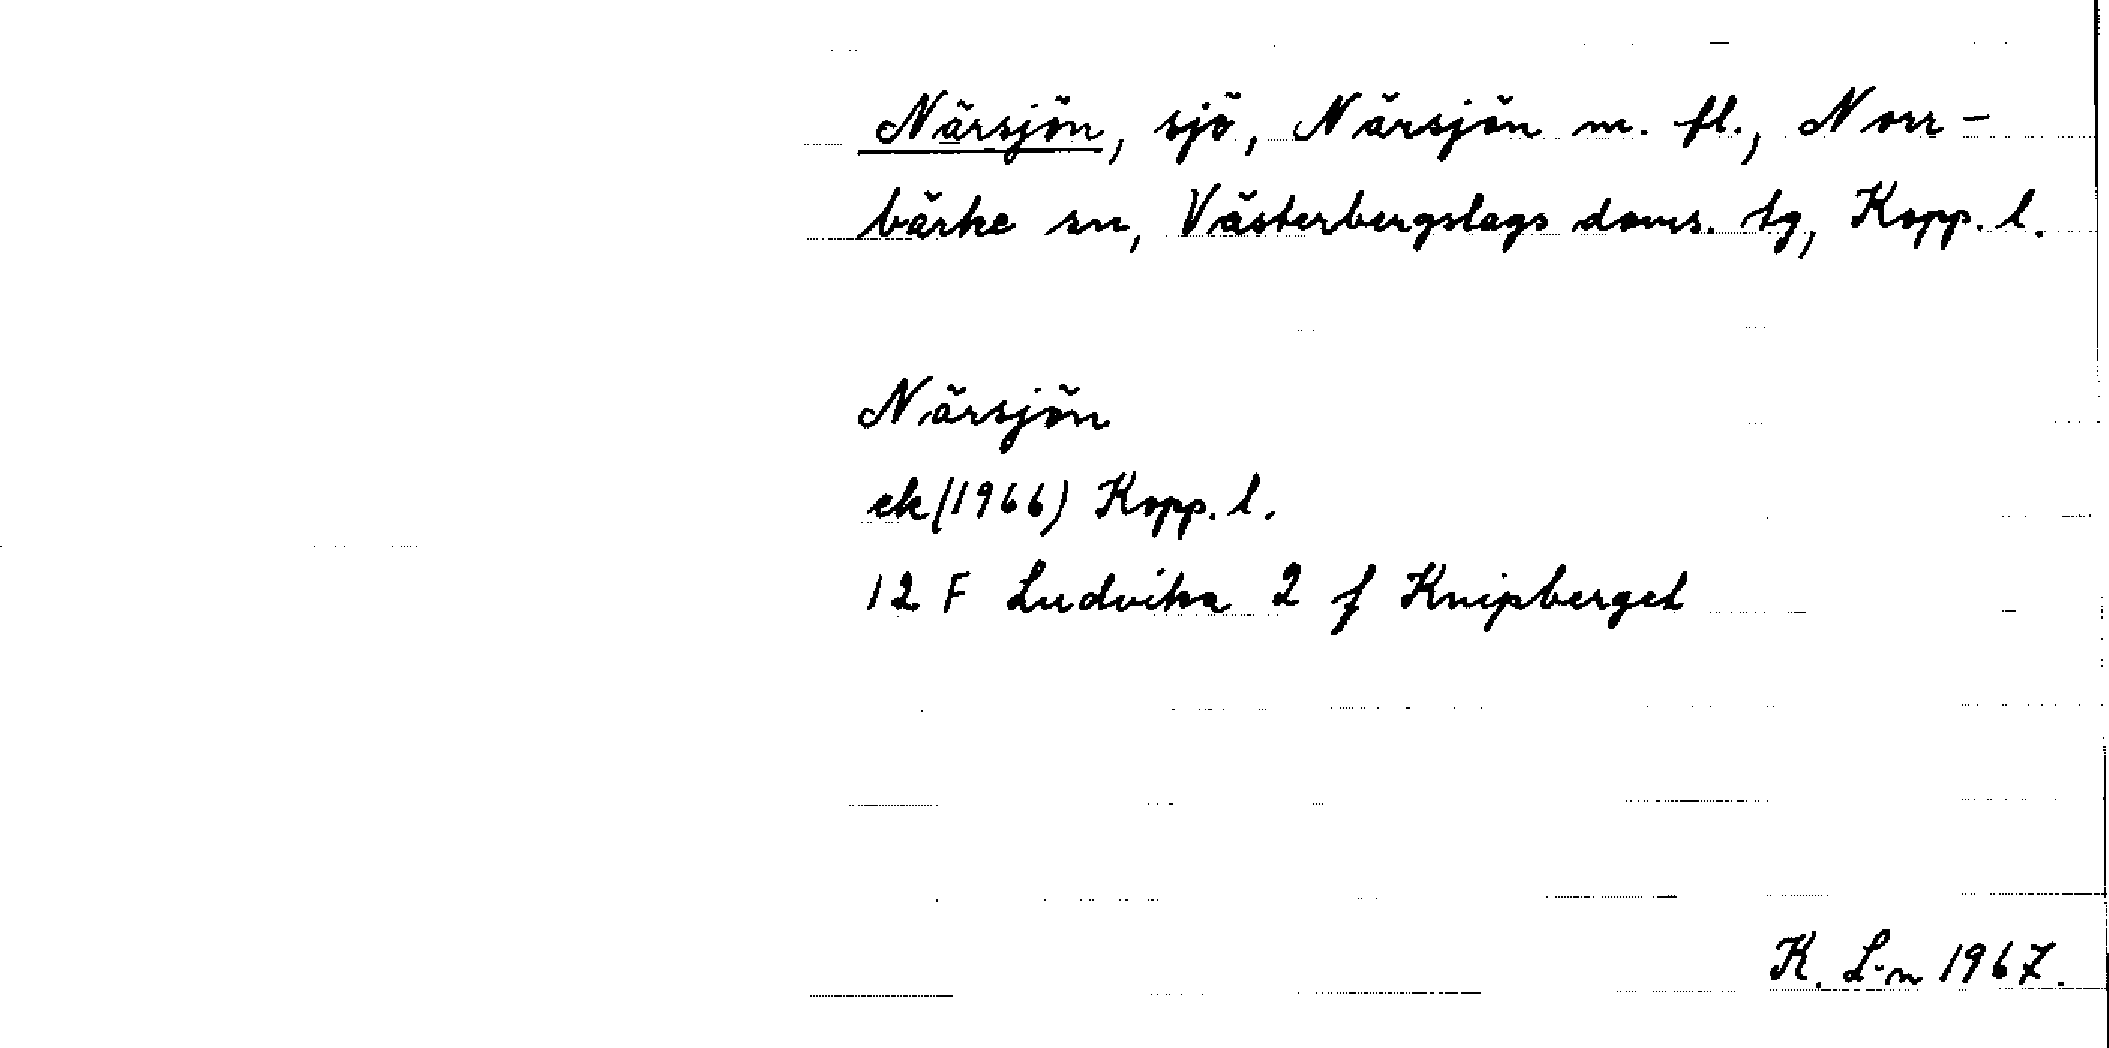 Närsjön, sjö, Närsjön m. fl., Norr-
bärke sn, Västerbergslags doms. tg, Kopp. l.
Närsjön
ek (1966) Kopp. l.
12 F Ludvika 2 f Knipberget
K. L-n 1967.